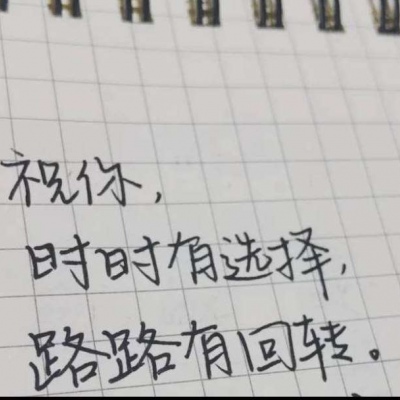 祝你，
时时有选择，
路路有回转。